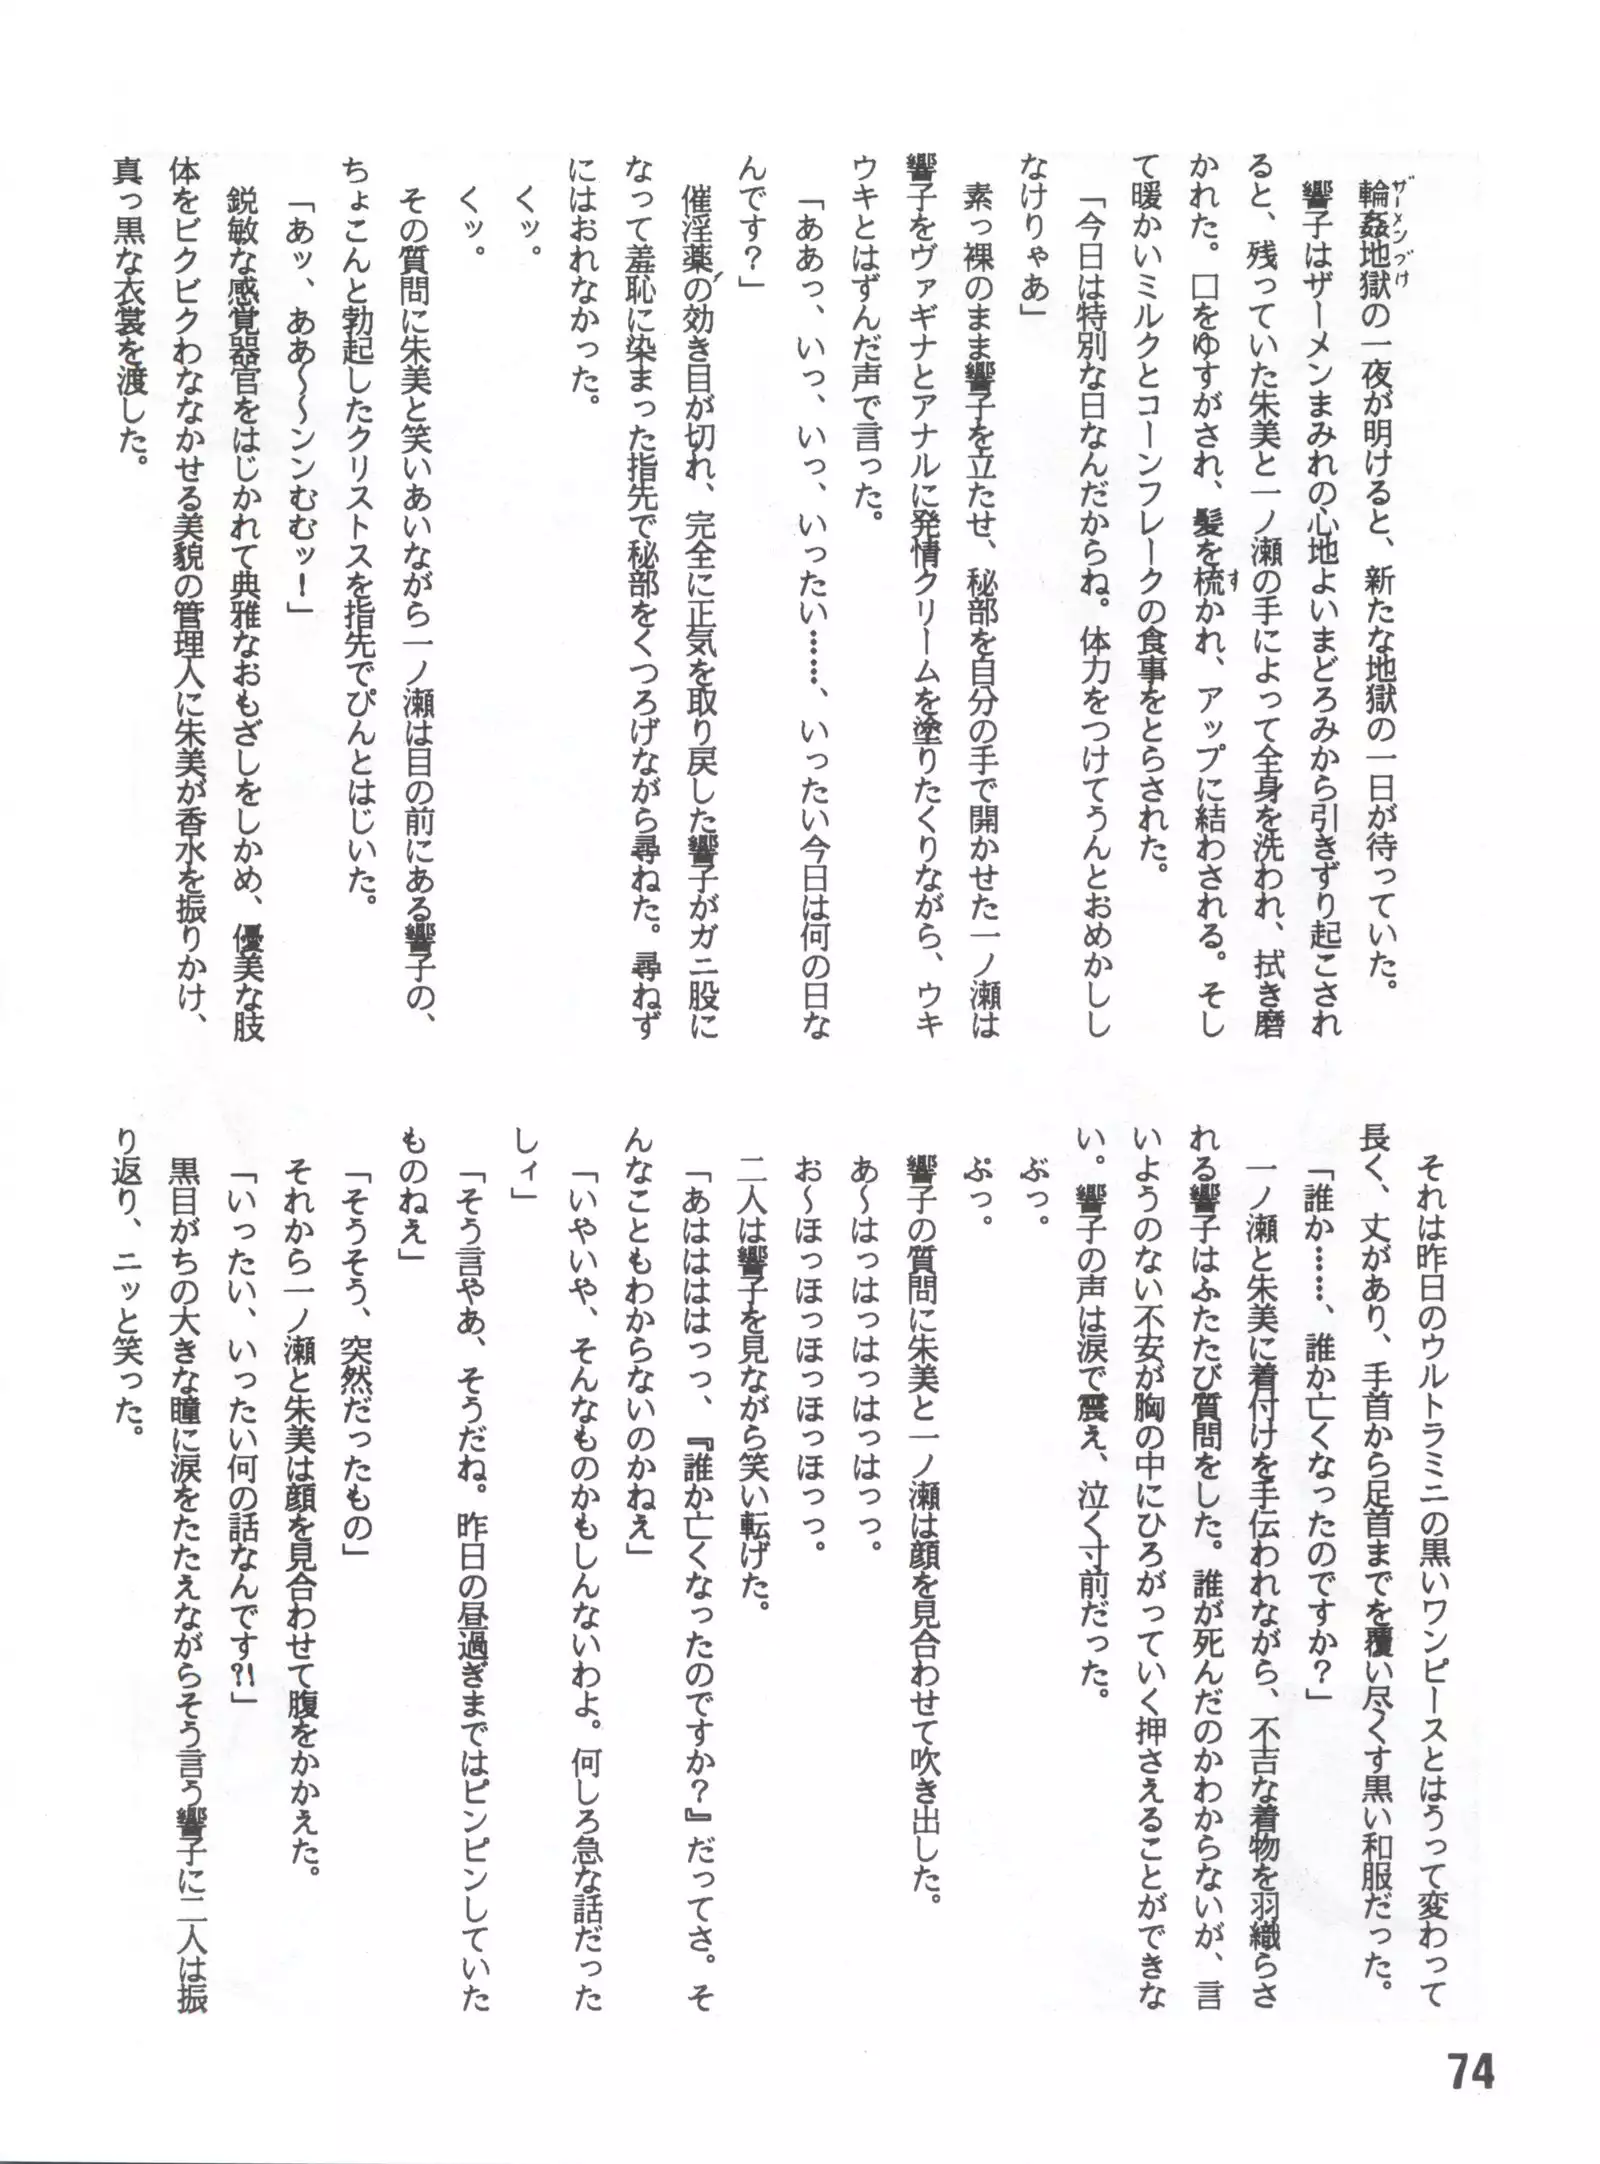 輪姦地獄の一夜が明けると、新たな地獄の一日が待っていた。
ザーメンづけ
響子はザーメンまみれの心地よいまどろみから引きずり起こされ
ると、残っていた朱美と一ノ瀬の手によって全身を洗われ、拭き磨
かれた。口をゆすがされ、髪を梳かれ、アップに結わされる。そし
す
て暖かいミルクとコーンフレークの食事をとらされた。
「今日は特別な日なんだからね。体力をつけてうんとおめかしし
なけりゃあ」
素っ裸のまま響子を立たせ、秘部を自分の手で開かせた一ノ瀬は
響子をヴァギナとアナルに発情クリームを塗りたくりながら、ウキ
ウキとはずんだ声で言った。
「ああっ、いっ、いっ、いったい……、いったい今日は何の日な
んです？」
催淫薬の効き目が切れ、完全に正気を取り戻した響子がガニ股に
なって羞恥に染まった指先で秘部をくつろげながら尋ねた。尋ねず
にはおれなかった。
くッ。
くッ。
その質問に朱美と笑いあいながら一ノ瀬は目の前にある響子の、
ちょこんと勃起したクリストスを指先でぴんとはじいた。
「あッ、ああ～～ンンむむッ！」
鋭敏な感覚器官をはじかれて典雅なおもざしをしかめ、優美な肢
体をビクビクわななかせる美貌の管理人に朱美が香水を振りかけ、
真っ黒な衣裳を渡した。
それは昨日のウルトラミニの黒いワンピースとはうって変わって
長く、丈があり、手首から足首までを覆い尽くす黒い和服だった。
「誰か……、誰か亡くなったのですか？」
一ノ瀬と朱美に着付けを手伝われながら、不吉な着物を羽織らさ
れる響子はふたたび質問をした。誰が死んだのかわからないが、言
いようのない不安が胸の中にひろがっていく押さえることができな
い。響子の声は涙で震え、泣く寸前だった。
ぶっ。
ぷっ。
響子の質問に朱美と一ノ瀬は顔を見合わせて吹き出した。
あ～はっはっはっはっはっはっっ。
お～ほっほっほっほっほっほっっ。
二人は響子を見ながら笑い転げた。
「あははははっっ、『誰か亡くなったのですか？』だってさ。そ
んなこともわからないのかねえ」
「いやいや、そんなものかもしんないわよ。何しろ急な話だった
しィ」
「そう言やあ、そうだね。昨日の昼過ぎまではピンピンしていた
ものねぇ」
「そうそう、突然だったもの」
それから一ノ瀬と朱美は顔を見合わせて腹をかかえた。
「いったい、いったい何の話なんです?!」
黒目がちの大きな瞳に涙をたたえながらそう言う響子に二人は振
り返り、ニッと笑った。
74